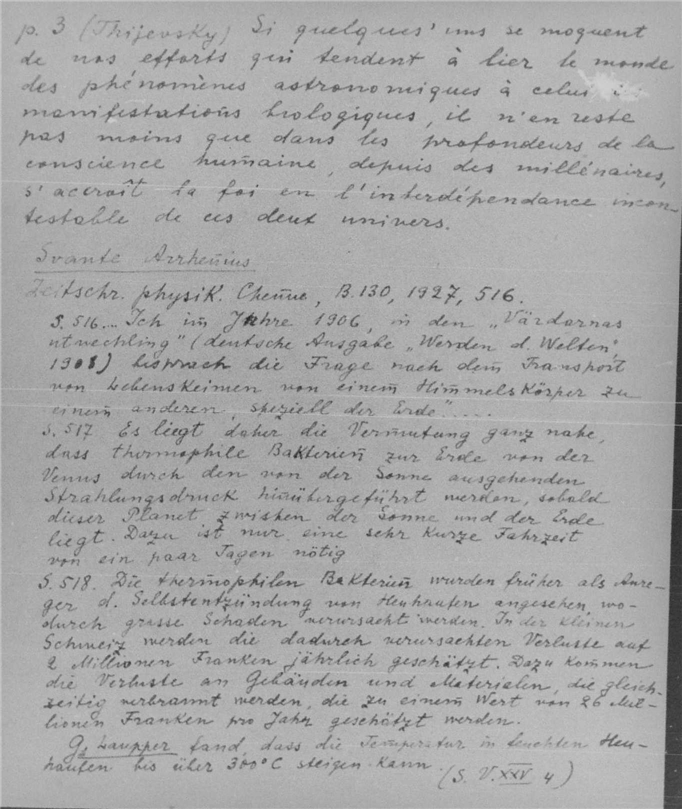 p. 3 (Thijevsky) Si quelques'uns se moquent
de nos efforts qui tendent à lier le monde
des phénomènes astronomiques à celui
manifestations biologiques, il n'en reste
pas moins que dans les profondeurs de la
conscience humaine, depuis des millénaires,
s'accroît la foi en l'interdépendance incon-
testable de ces deux univers.
Svante Arrhenius
Zeitschr. physik. Chemie, B. 130, 1927, 516.
S. 516... Ich im Jahre 1906, in den „Världarnas
utveckling" (deutsche Ausgabe „Werden d. Welten",
1908) besprach die Frage nach dem Transport
von Lebenskeimen von einem Himmelskörper zu
einem anderen, speziell der Erde"....
S. 517 Es liegt daher die Vermutung ganz nahe,
dass thermophile Bakterien zur Erde von der
Venus durch den von der Sonne ausgehenden
Strahlungsdruck hinübergeführt werden, sobald
dieser Planet zwischen der Sonne und der Erde
liegt. Dazu ist nur eine sehr kurze Fahrzeit
von ein paar Tagen nötig
S. 518. Die thermophilen Bakterien wurden früher als Anre-
ger d. Selbstentzündung von Heuhaufen angesehen, wo-
durch grosse Schaden verursacht werden. In der kleinen
Schweiz werden die dadurch verursachten Verluste auf
2 Millionen Franken jährlich geschätzt. Dazu kommen
die Verluste an Gebäuden und Materialen, die gleich-
zeitig verbrannt werden, die zu einem Wert von 26 Mil-
lionen Franken pro Jahr geschätzt werden.
G. Laupper fand, dass die Temperatur in feuchten Heu-
haufen bis über 300°C steigen kann. (S. V. XXV 4)